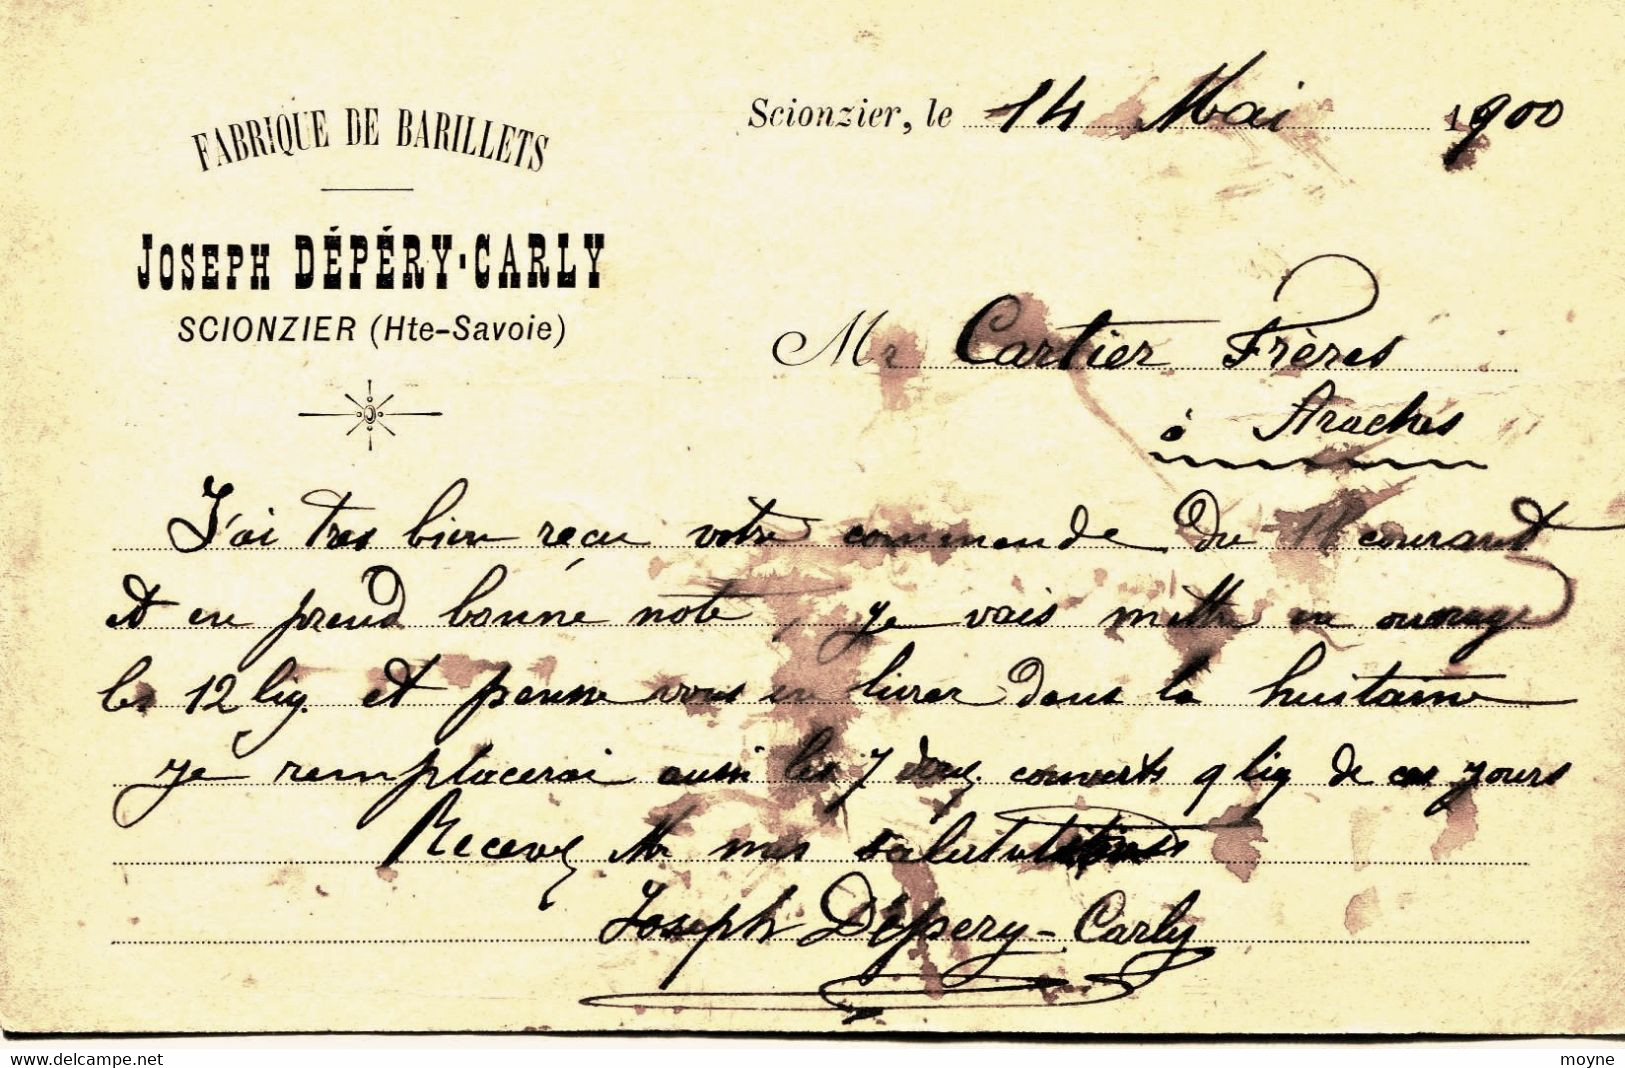 FABRIQUE DE BARILLETS
JOSEPH DÉPÉRY-CARLY
SCIONZIER (Hte-Savoie)
Scionzier, le 14 Mai 1900
Mr Cartier Frères
à Araches
J'ai tres bien reçu votre commande du 11 courant
et en prend bonne note, je vais mettre en ouvrage
les 12 lig. et pense vous en livrer dans la huitaine
je remplacerai aussi les 7 douz couverts 9 lig de ces jours
Recevez Mr mes salutations
Joseph Dépery-Carly
www.delcampe.net
moyne